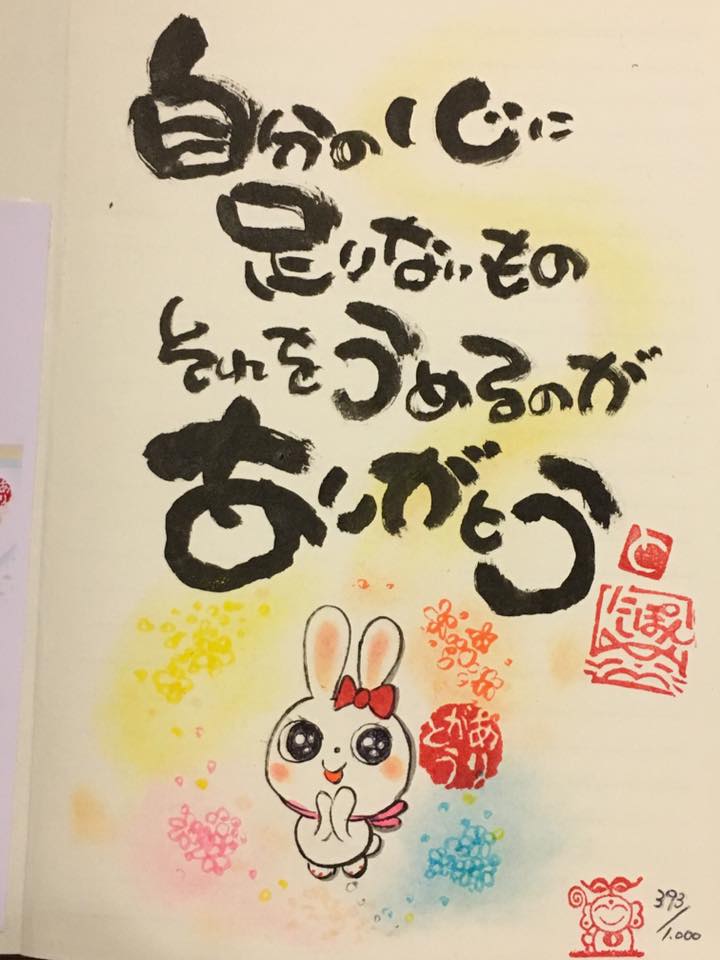 自分の心に
足りないもの
それをうめるのが
ありがとう
と
にっぽん
ありがとう
393/1.000